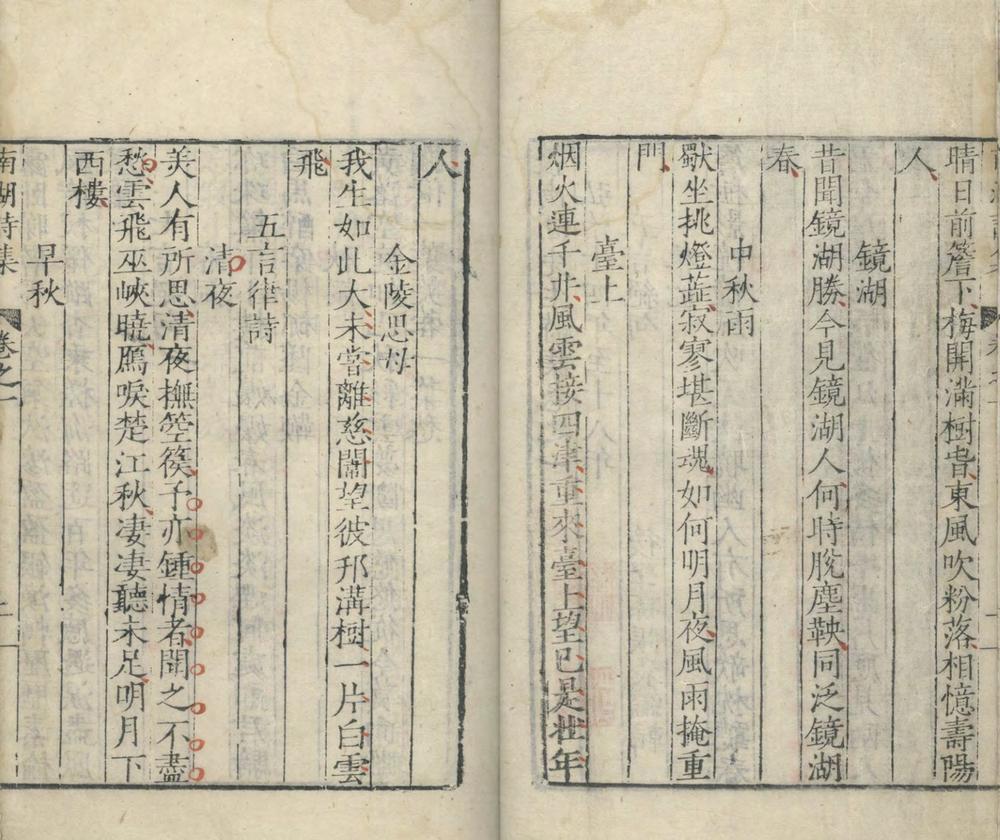 晴日前簷下梅開滿樹皆東風吹粉落相憶壽陽
人
鏡湖
昔聞鏡湖勝今見鏡湖人何時脫塵鞅同泛鏡湖
春
中秋雨
獸坐挑燈蕋寂寥堪斷魂如何明月夜風雨掩重
門
臺上
烟火連千井風雲接四津重來臺上望已是壯年
人
金陵思母
我生如此大未嘗離慈闈望彼邗溝樹一片白雲
飛
五言律詩
清夜
美人有所思清夜撫箜篌予亦鍾情者聞之不盡
愁雲飛巫峽曉鴈唳楚江秋凄凄聽未足明月下
西樓
早秋
南湖詩集 卷之一